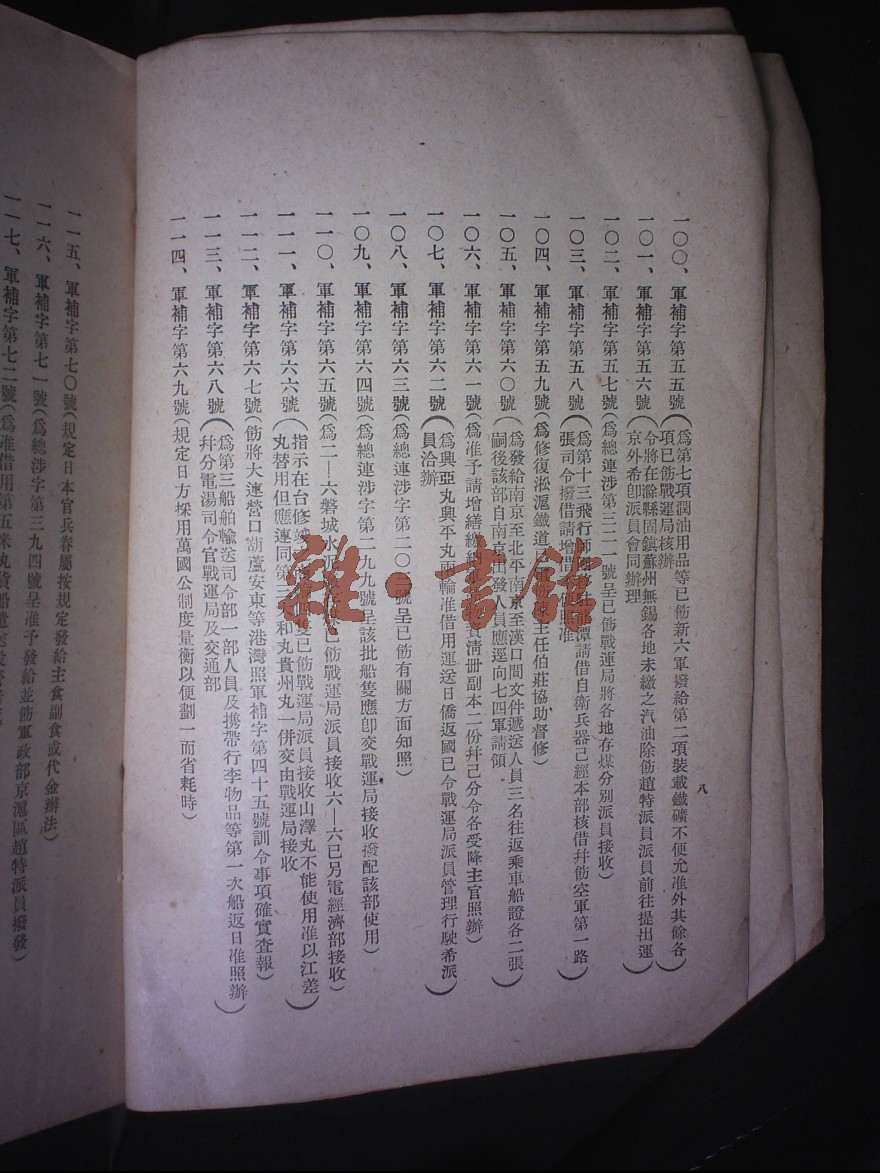 八
一〇〇、軍補字第五五號(爲第七項潤油用品等已飭新六軍撥給第二項裝載鐵礦不便允准外其餘各
項已飭戰運局核辦)
一〇一、軍補字第五六號(令將在滁縣固鎮蘇州無錫各地未繳之汽油除飭趙特派員派員前往提出運
京外希卽派員會同辦理)
一〇二、軍補字第五七號(爲總連涉第三二一號呈已飭戰運局將各地存煤分別派員接收)
一〇三、軍補字第五八號(爲第十三飛行師 請借自衛兵器己經本部核借幷飭空軍第一路
張司令撥借請增借 准)
一〇四、軍補字第五九號(爲修復淞滬鐵道已 主任伯莊協助督修)
一〇五、軍補字第六〇號(爲發給南京至北平南京至漢口間文件遞送人員三名往返乘車船證各二張
嗣後該部自南京出發人員應逕向七四軍請領)
一〇六、軍補字第六一號(爲准予請增繕繳 淸册副本二份幷己分令各受降主官照辦)
一〇七、軍補字第六二號(爲興亞丸興平丸兩輪准借用運送日僑返國已令戰運局派員管理行駛希派
員洽辦)
一〇八、軍補字第六三號(爲總連涉字第二〇 號呈已飭有關方面知照)
一〇九、軍補字第六四號(爲總連涉字第二九九號呈該批船隻應卽交戰運局接收撥配該部使用)
一一〇、軍補字第六五號(爲二—六磐城水 已飭戰運局派員接收六—六已另電經濟部接收)
一一一、軍補字第六六號(指示在台修 隻已飭戰運局派員接收山澤丸不能使用准以江差
丸替用但應連同第三大和丸貴州丸一併交由戰運局接收)
一一二、軍補字第六七號(飭將大連營口葫蘆安東等港灣照軍補字第四十五號訓令事項確實查報)
一一三、軍補字第六八號(爲第三船舶輸送司令部一部人員及携帶行李物品等第一次船返日准照辦
幷分電湯司令官戰運局及交通部)
一一四、軍補字第六九號(規定日方採用萬國公制度量衡以便劃一而省耗時)
一一五、軍補字第七〇號(規定日本官兵眷屬按規定發給主食副食或代金辦法)
一一六、軍補字第七一號(爲總涉字第三九四號呈准予發給並飭軍政部京滬區趙特派員撥發)
一一七、軍補字第七二號(爲准借用第五米丸貨船